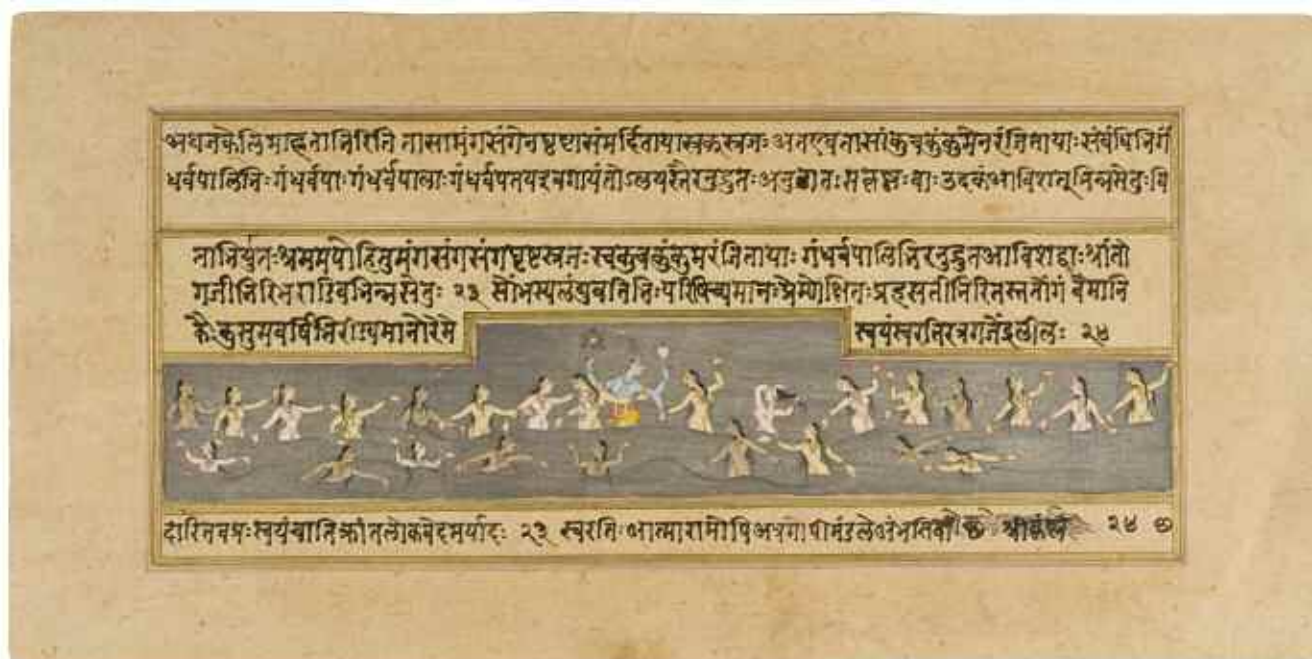 अथजलकेलिमाहताभिरिति तासामंगसंगेनघृष्टासंमर्दितायास्रक्स्रजः अतएवतासांकुचकुंकुमेनरंजितायाःसंबंधिभिर्गं
धर्वपालिभिःगंधर्वपाःगंधर्वपालाःगंधर्वपतयइवगायंतोऽलयस्तैरनुद्रुतःअनुगतःसकृष्णःवाःउदकंआविशत्भिन्नसेतुःवि
ताभिर्युतःश्रममपोहितुमंगसंगघृष्टस्रजःस्वकुचकुंकुमरंजितायाः गंधर्वपालिभिरनुद्रुतआविशद्वाःश्रांतो
गजीभिरिभराडिवभिन्नसेतुः २३ सोंभस्यलंयुवतिभिःपरिषिच्यमानःप्रेम्णेक्षितःप्रहसतीभिरितस्ततोंगं वैमानि
कैःकुसुमवर्षिभिरीड्यमानोरेमे स्वयंस्वरतिरत्रगजेंद्रलीलः २४
दारितवप्रःस्वयंचातिक्रांतलोकवेदमर्यादः २३ स्वरतिःआत्मारामोपिअत्रगोपीमंडले २४